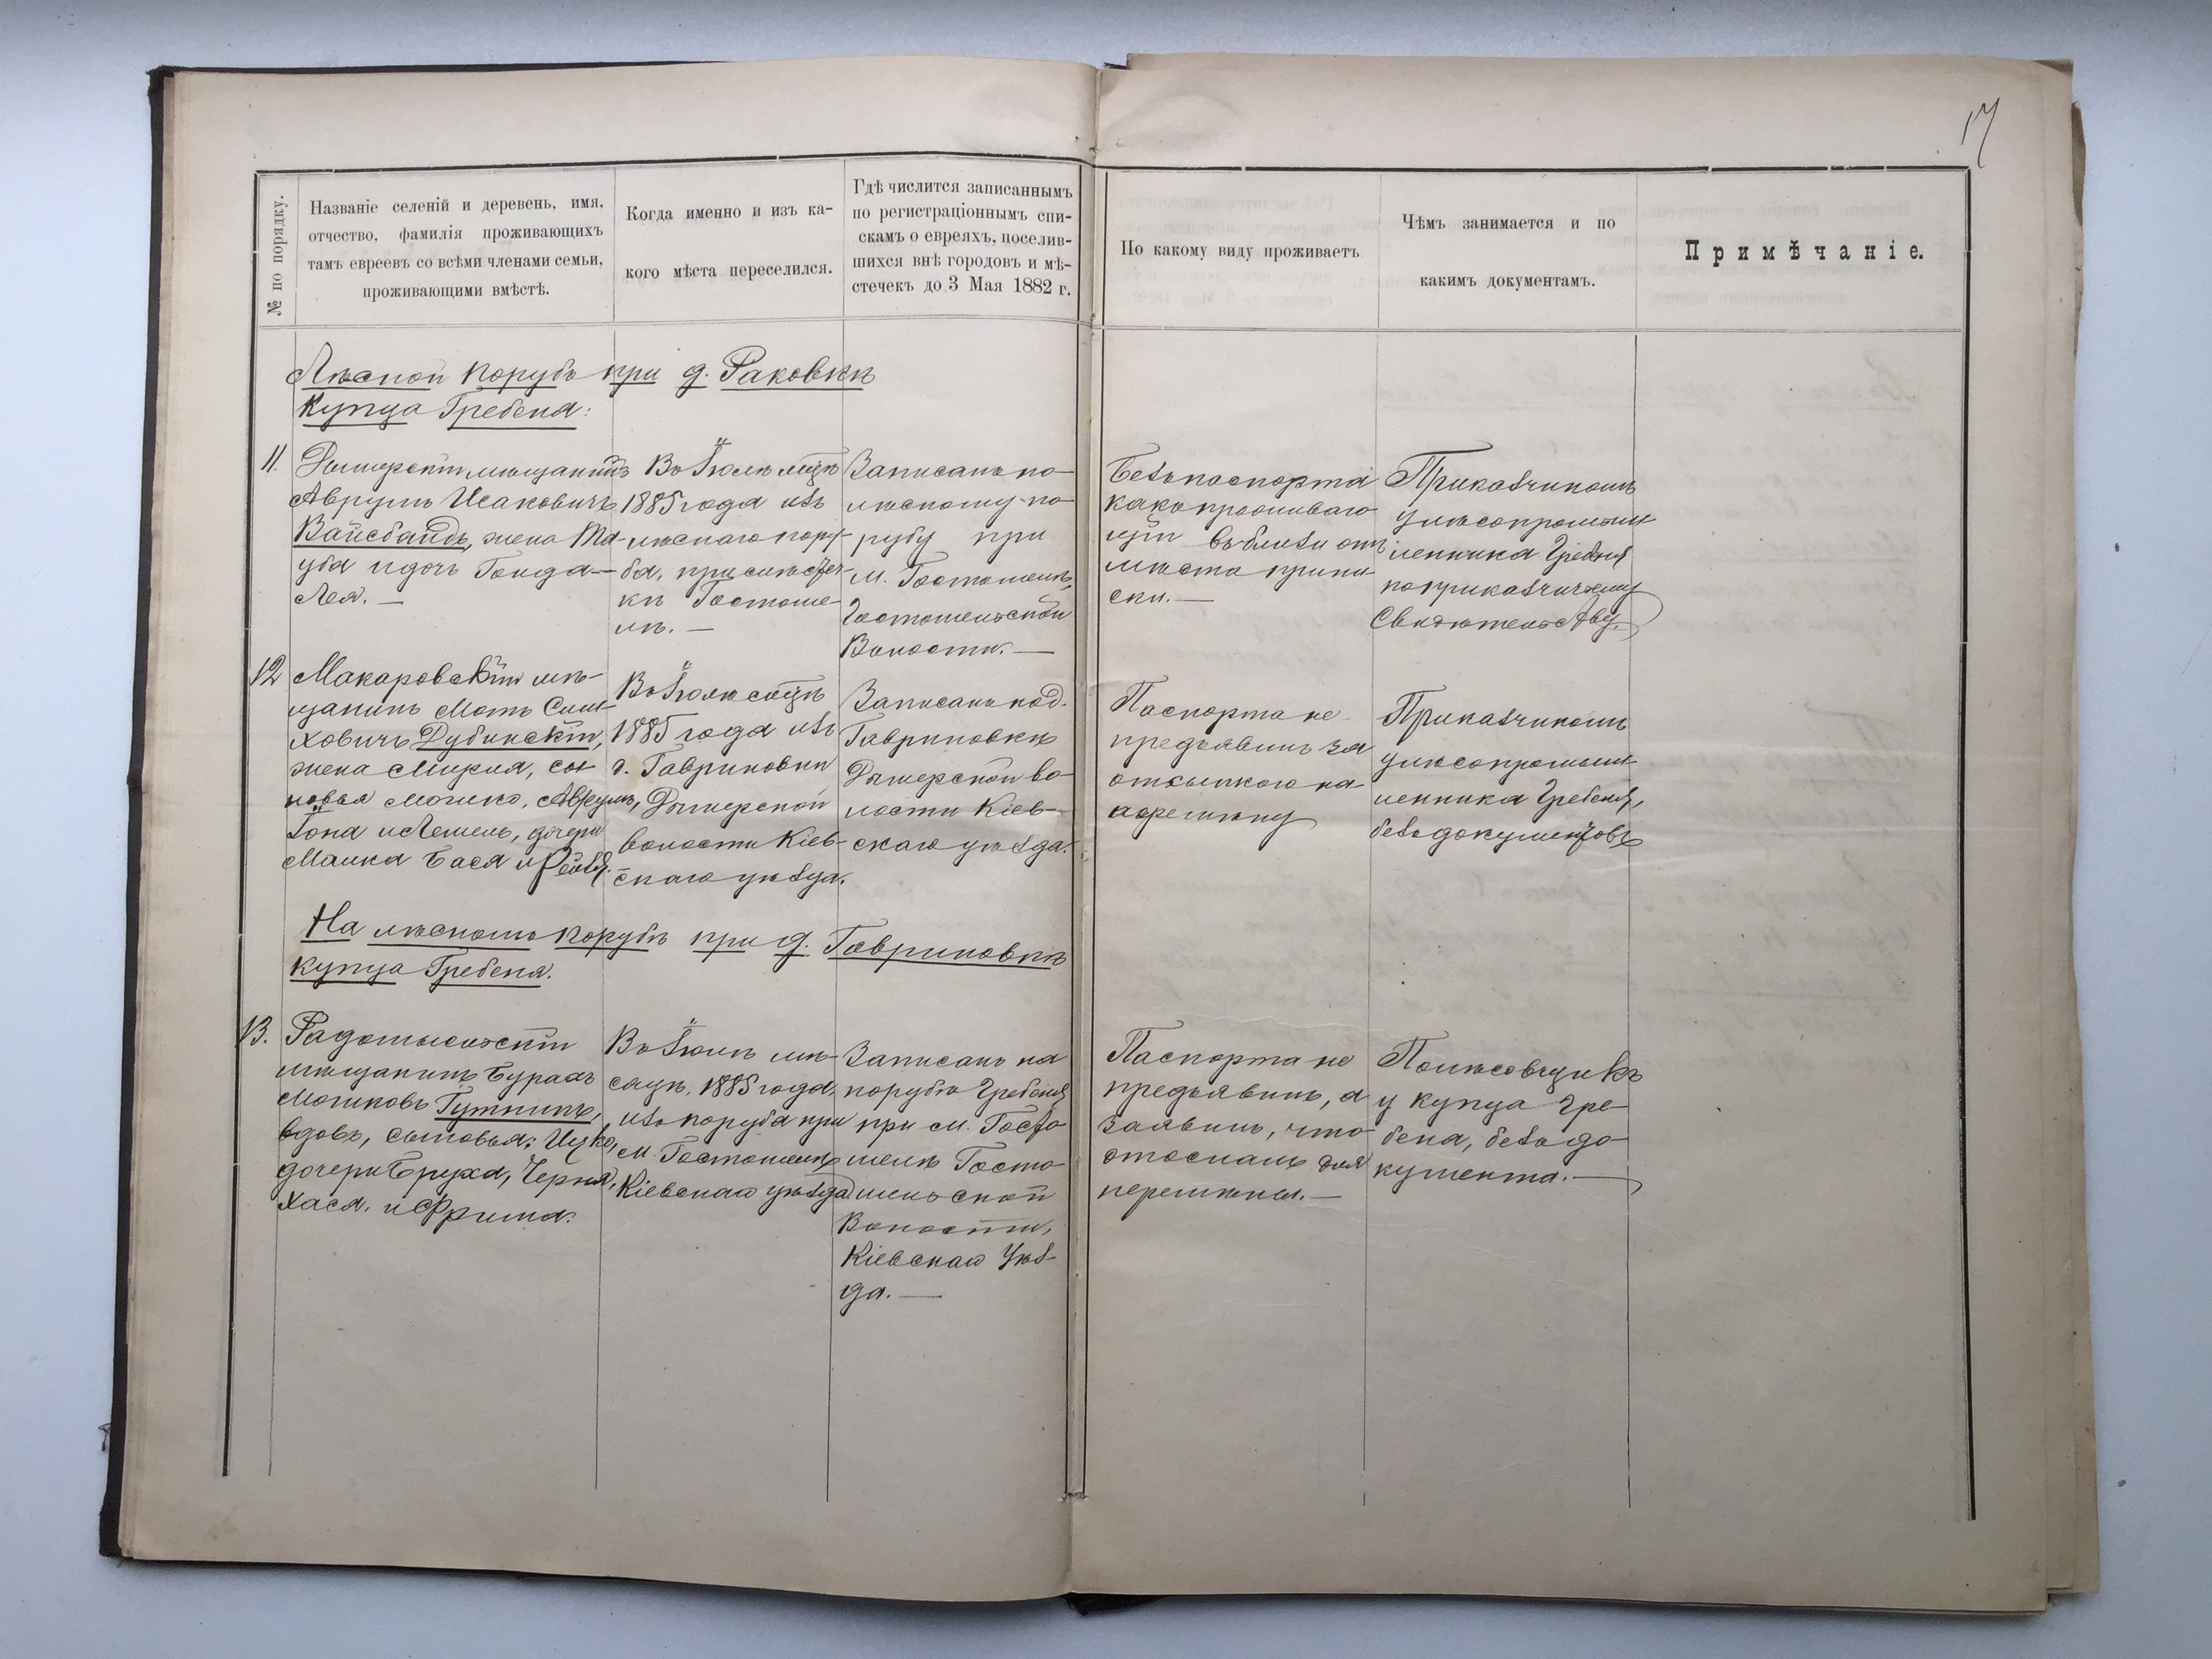 17
№ по порядку.
Названіе селеній и деревень, имя,
отчество, фамилія проживающихъ
тамъ евреевъ со всѣми членами семьи,
проживающими вмѣстѣ.
Когда именно и изъ ка-
кого мѣста переселился.
Гдѣ числится записаннымъ
по регистраціоннымъ спи-
скамъ о евреяхъ, поселив-
шихся внѣ городовъ и мѣ-
стечекъ до 3 Мая 1882 г.
По какому виду проживаетъ
Чѣмъ занимается и по
какимъ документамъ.
Примѣчаніе.
Лѣсной порубъ при д. Раковкѣ
Купца Гребеня:
11.
Дымерскій мѣщанинъ
Аврумъ Исаковичъ
Вайсбандъ, жена Та-
уба и дочь Гольда
Лея. —
Въ Іюлѣ мцѣ
1885 года изъ
лѣснаго пору-
ба, при
кѣ Гостоме-
лѣ. —
Записанъ по
лѣсному по-
рубу при
м. Гостомелѣ,
Гостомельской
Волости. —
Безъ паспорта
какъ проживаю
щій въблизи отъ
мѣста припи-
ски. —
Приказчикомъ
у лѣсопромыш
ленника Гребеня
по приказчичьему
Свидѣтельству.
12
Макаровскій мѣ-
щанинъ Моть Сим-
ховичъ Дубинскій,
жена Мирля, сы-
новья Мошко, Аврумъ,
Іона и Лейзель, дочери
Малка Бася и Рейзя.
Въ Іюлѣ сцѣ
1885 года изъ
д. Гавриловки
Дымерской
волости Кіев-
скаго уѣзда.
Записанъ под.
Гавриловкѣ
Дымерской во-
лости Кіев-
скаго уѣзда.
Паспорта не
предъявилъ за
отсылкою на
Приказчикомъ
у лѣсопромыш-
ленника Гребеня,
безъ документовъ
На лѣсномъ порубѣ при д. Гавриловкѣ
купца Гребеня.
13.
Радомысльскій
мѣщанинъ Бурахъ
Мошковъ Гутникъ,
вдовъ, сыновья: Ицко,
дочери Бруха, Черня,
Хася, и Фрима.
Въ Іюлѣ мѣ-
сяцѣ, 1885 года,
изъ поруба при
м. Гостомелѣ
Кіевскаго уѣзда
Записанъ на
порубѣ Гребеня
при м. Госто
мелѣ Госто-
мельской
Волости,
Кіевскаго Уѣз-
да. —
Паспорта не
предъявилъ, а
заявилъ, что
отослалъ для
перемѣны. —
Полѣсовщикъ
у купца Гре-
беня, безъ до
кумента. —